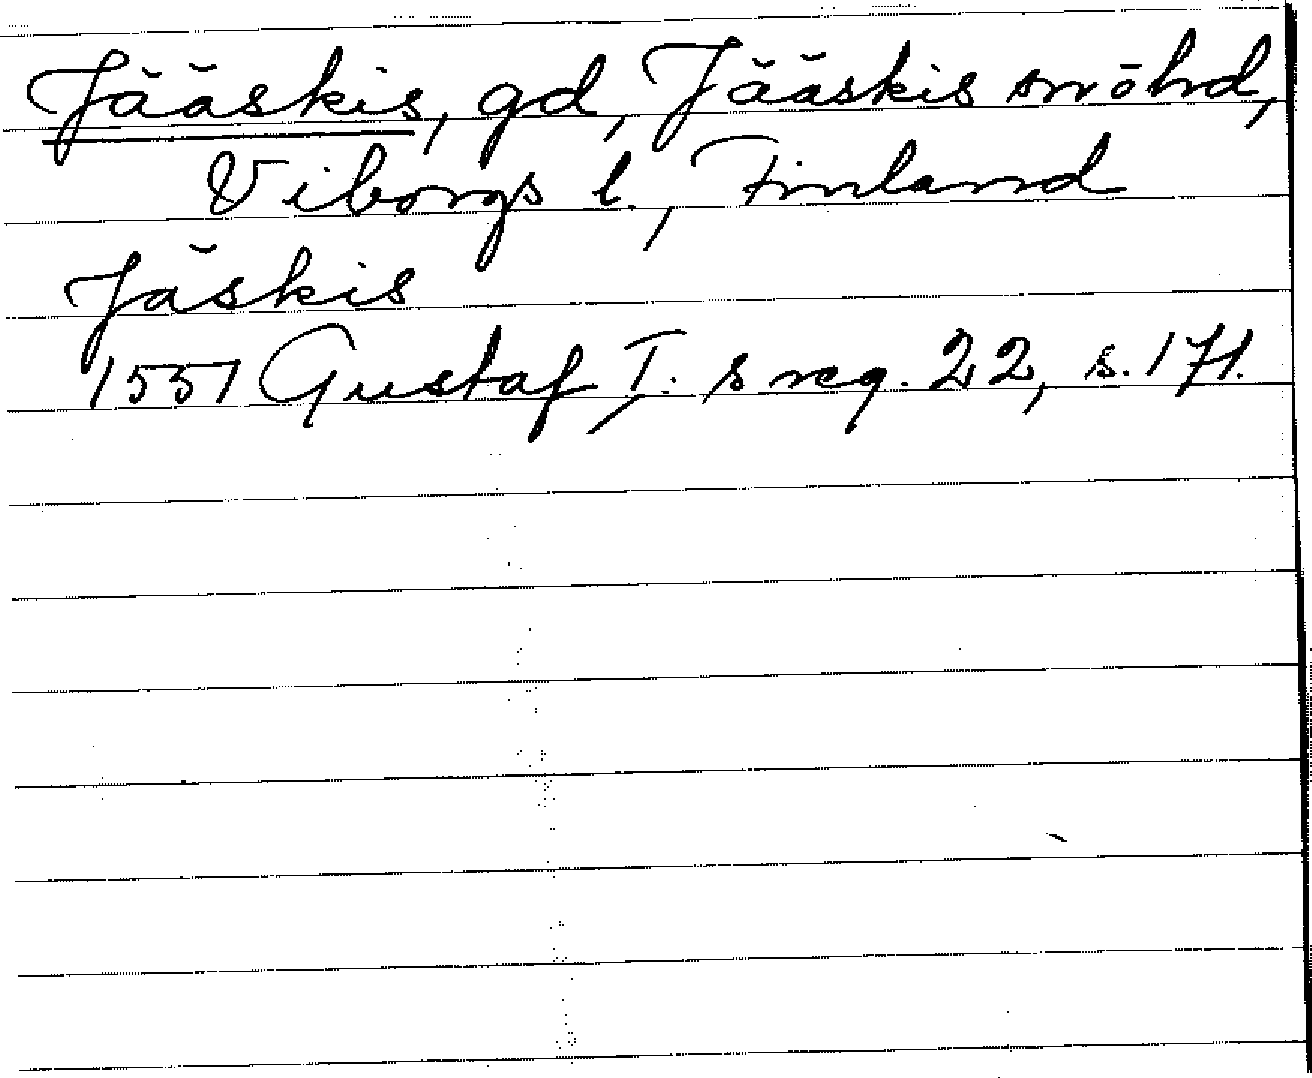 Jääskis, gd, Jääskis sn o hd,
Viborgs l., Finland
Jäskis
1551 Gustaf I:s reg. 22, s. 171.